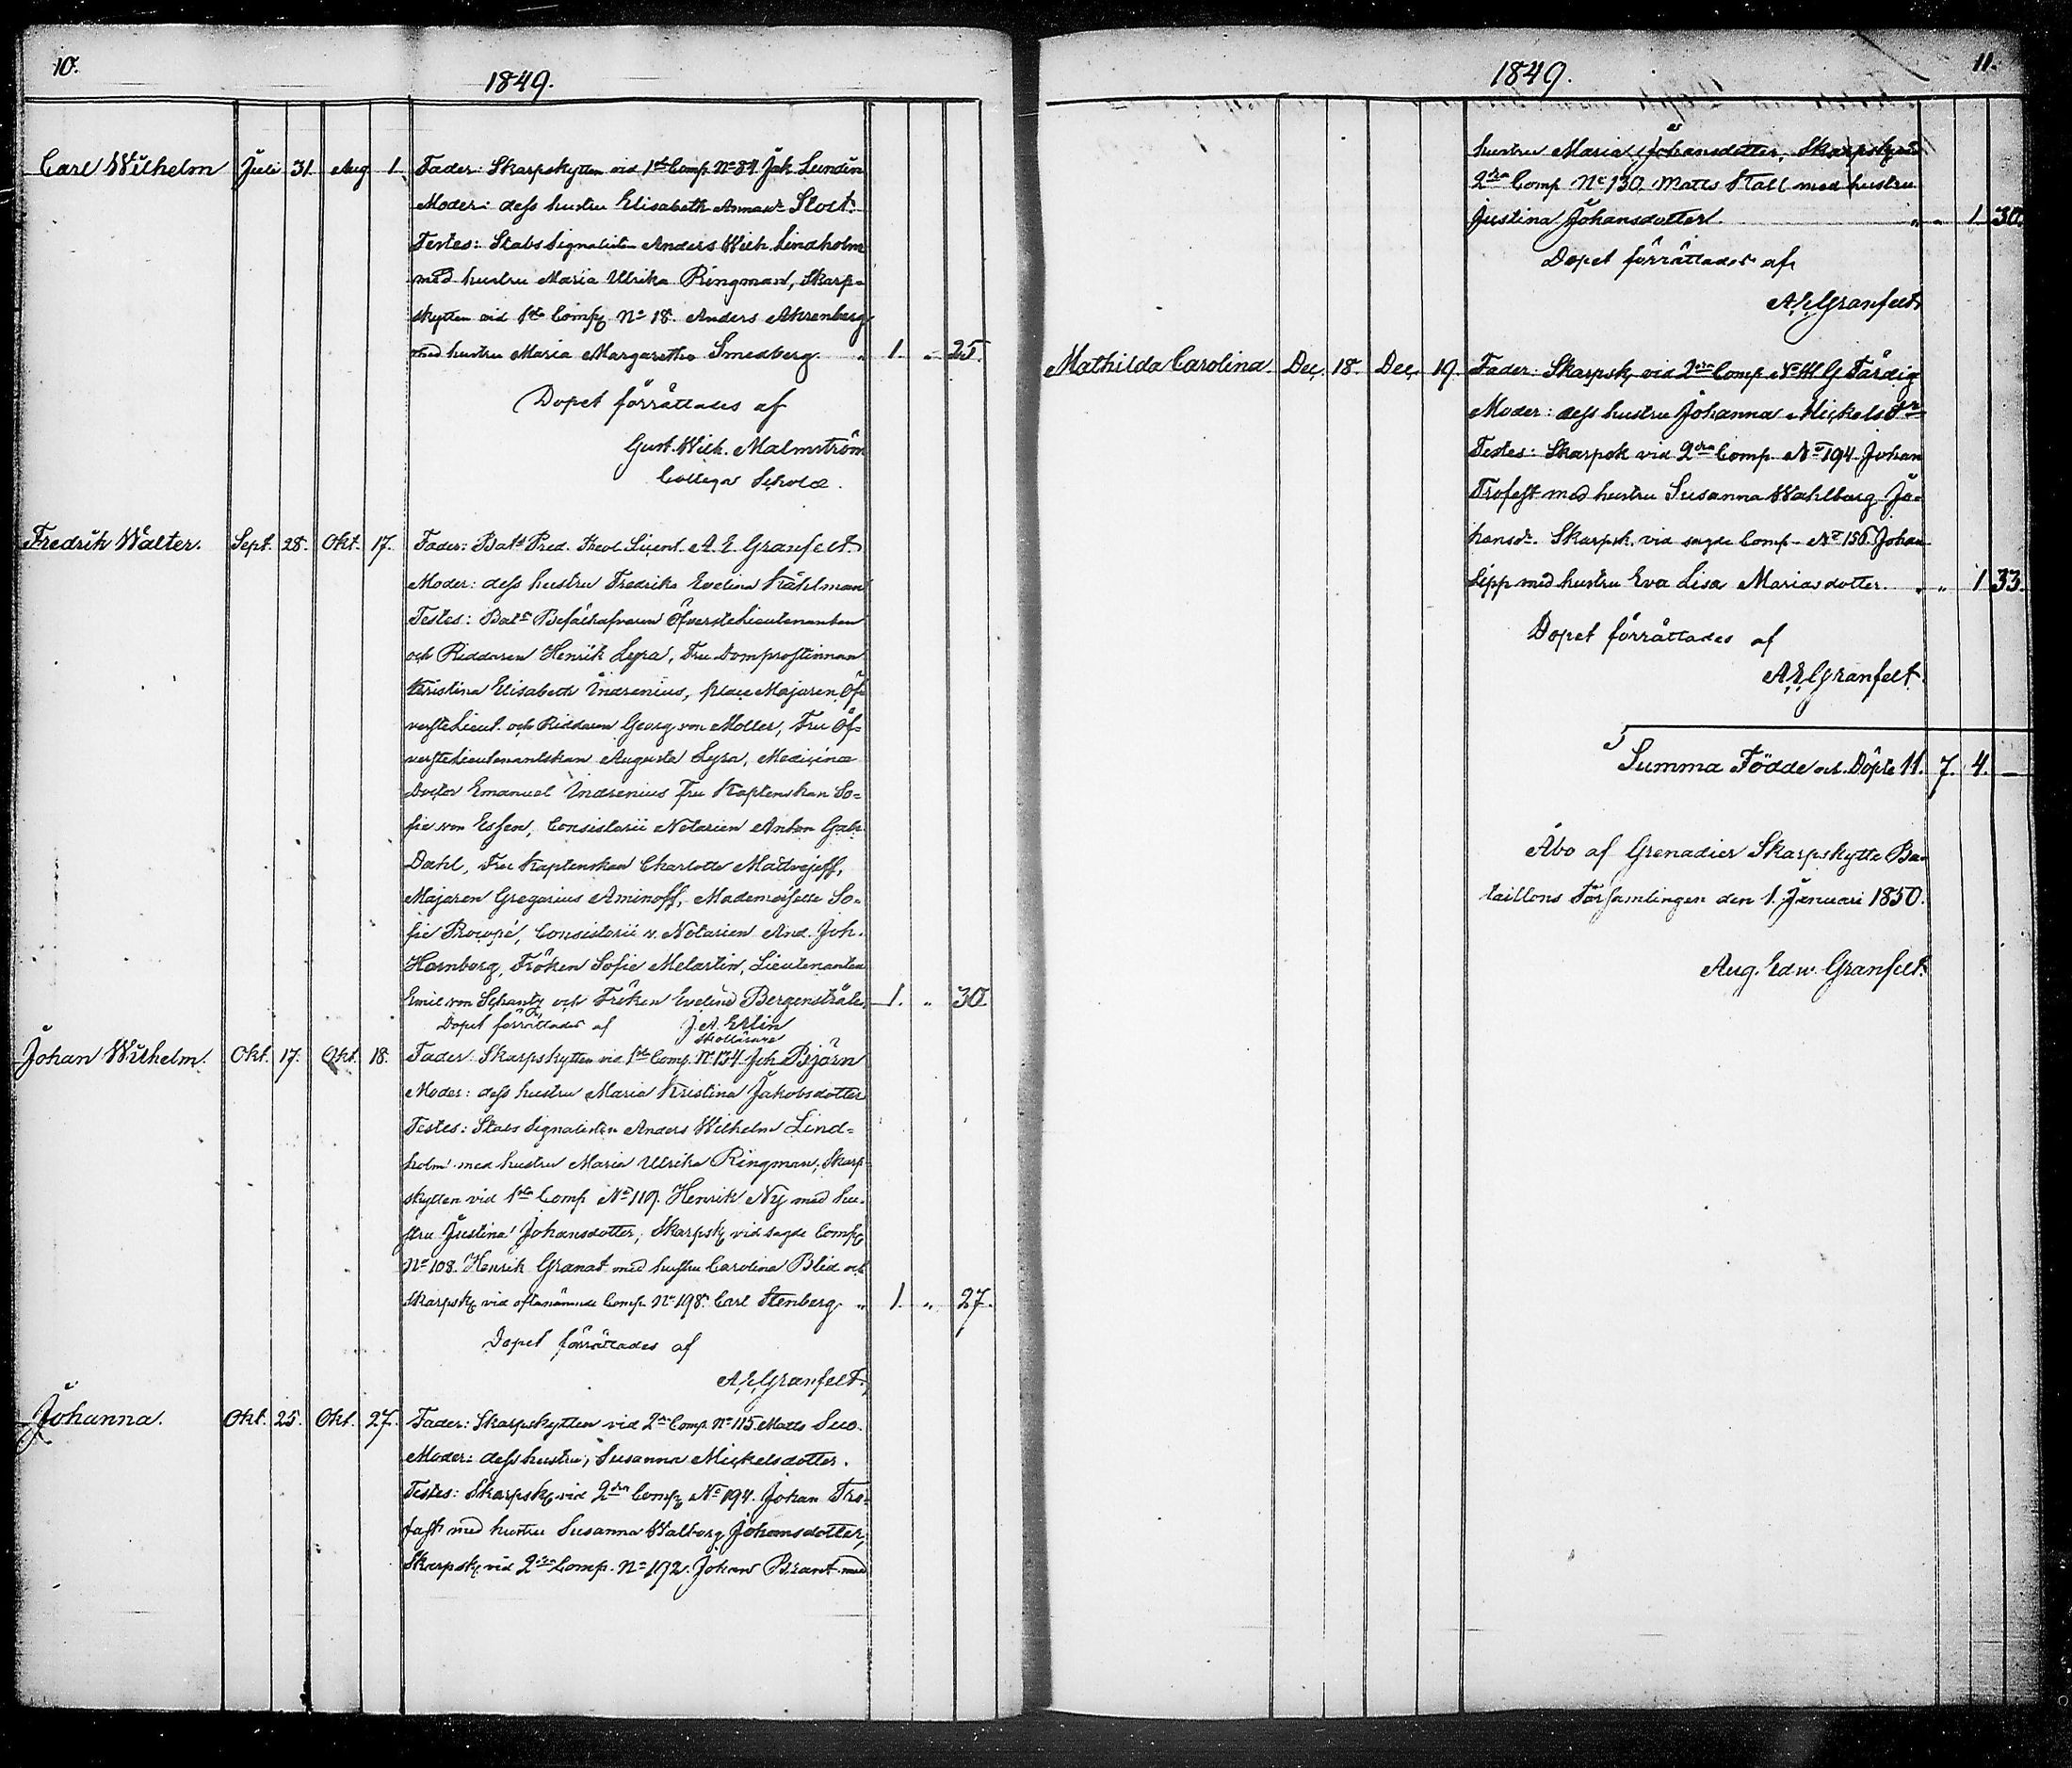 10.
1849.
Carl Wilhelm Juli 31. Aug 1. Fader: Skarpskytten vid 1sta Comp No 84 Jak Lundin
Moder: dess hustru Elisabeth Annasdr Slott.
Testes: Stabs Signalisten Anders Wilh. Lindholm
med hustru Maria Ulrika Ringman, Skarp-
skytten vid 1sta Comp No 18. Anders Ahrenberg
med hustru Maria Margaretha Smedberg. " 1. " 25.
Dopet förrättades af
Gust. Wilh. Malmström
Collega Scholæ.
Fredrik Walter. Sept. 28. Okt. 17. Fader: Bats Pred. Theol. Licent. A. E. Granfelt.
Moder: dess hustru Fredrika Evelina Kählman
Testes: Bats Befälhafvaren ÖfversteLieutenanten
och Riddaren Henrik Lyra, Fru Domprostinnan
Kristina Elisabeth Indrenius, place Majoren Öf-
versteLieut. och Riddaren Georg von Moller, Fru Öf-
versteLieutenantskan Augusta Lyra, Medicinæ
Doctor Emanuel Indrenius Fru Kaptenskan So-
fie von Essen, Consistorii Notarien Anton Gabr.
Dahl, Fru Kaptenskan Charlotte Mattvejeff,
Majoren Gregorius Aminoff, Mademoiselle So-
fie Procopé, Consistorii v. Notarien And. Joh.
Hornborg, Fröken Sofie Melartin, Lieutenanten
Emil von Schantz och Fröken Evelina Bergenstråle. 1. " 30.
Dopet förrättades af J. A. Erlin
Skollärare
Johan Wilhelm. Okt. 17. Okt. 18. Fader: Skarpskytten vid 1sta Comp. No 134 Joh Björn
Moder: dess hustru Maria Kristina Jakobsdotter
Testes: Stabs Signalisten Anders Wilhelm Lind-
holm med hustru Maria Ulrika Ringman, Skarp-
skytten vid 1sta Comp No 119. Henrik Ny med hu-
stru Justina Johansdotter, Skarpsk. vid sagde Comp
No 108. Henrik Granat med hustru Carolina Blid och
Skarpsk. vid oftanämnde Comp. No 198. Carl Stenberg. " 1. " 27.
Dopet förrättades af
A. E. Granfelt.
Johanna. Okt. 25. Okt. 27. Fader: Skarpskytten vid 2dra Comp. No 115. Matts Suo.
Moder: dess hustru, Susanna Mickelsdotter.
Testes: Skarpsk. vid 2dra Comp No 194. Johan Tro-
fast med hustru Susanna Walborg Johansdotter,
Skarpsk. vid 2dra Comp. No 192. Johan Brant med
1849.
11.
hustru Maria Johansdotter, Skarpsk. vid
2dra Comp No 130 Matts Stall med hustru
Justina Johansdotter. " " 1 30.
Dopet förrättades af
A. E. Granfelt
Mathilda Carolina Dec. 18. Dec. 19. Fader: Skarpsk. vid 2dra Comp No 111 G Färdig
Moder: dess hustru Johanna Mickelsdr
Testes: Skarpsk vid 2dra Comp No 194 Johan
Trofast med hustru Susanna Wahlborg Jo-
hansdr. Skarpsk. vid sagde Comp. No 156. Johan
Lipp med hustru Eva Lisa Mariasdotter. " " 1 33.
Dopet förrättades af
A. E. Granfelt.
Summa Födde och Döpte 11. 7. 4. —
Åbo af Grenadier Skarpskytte Ba-
taillons Församlingen den 1. Januari 1850.
Aug. Edw. Granfelt.